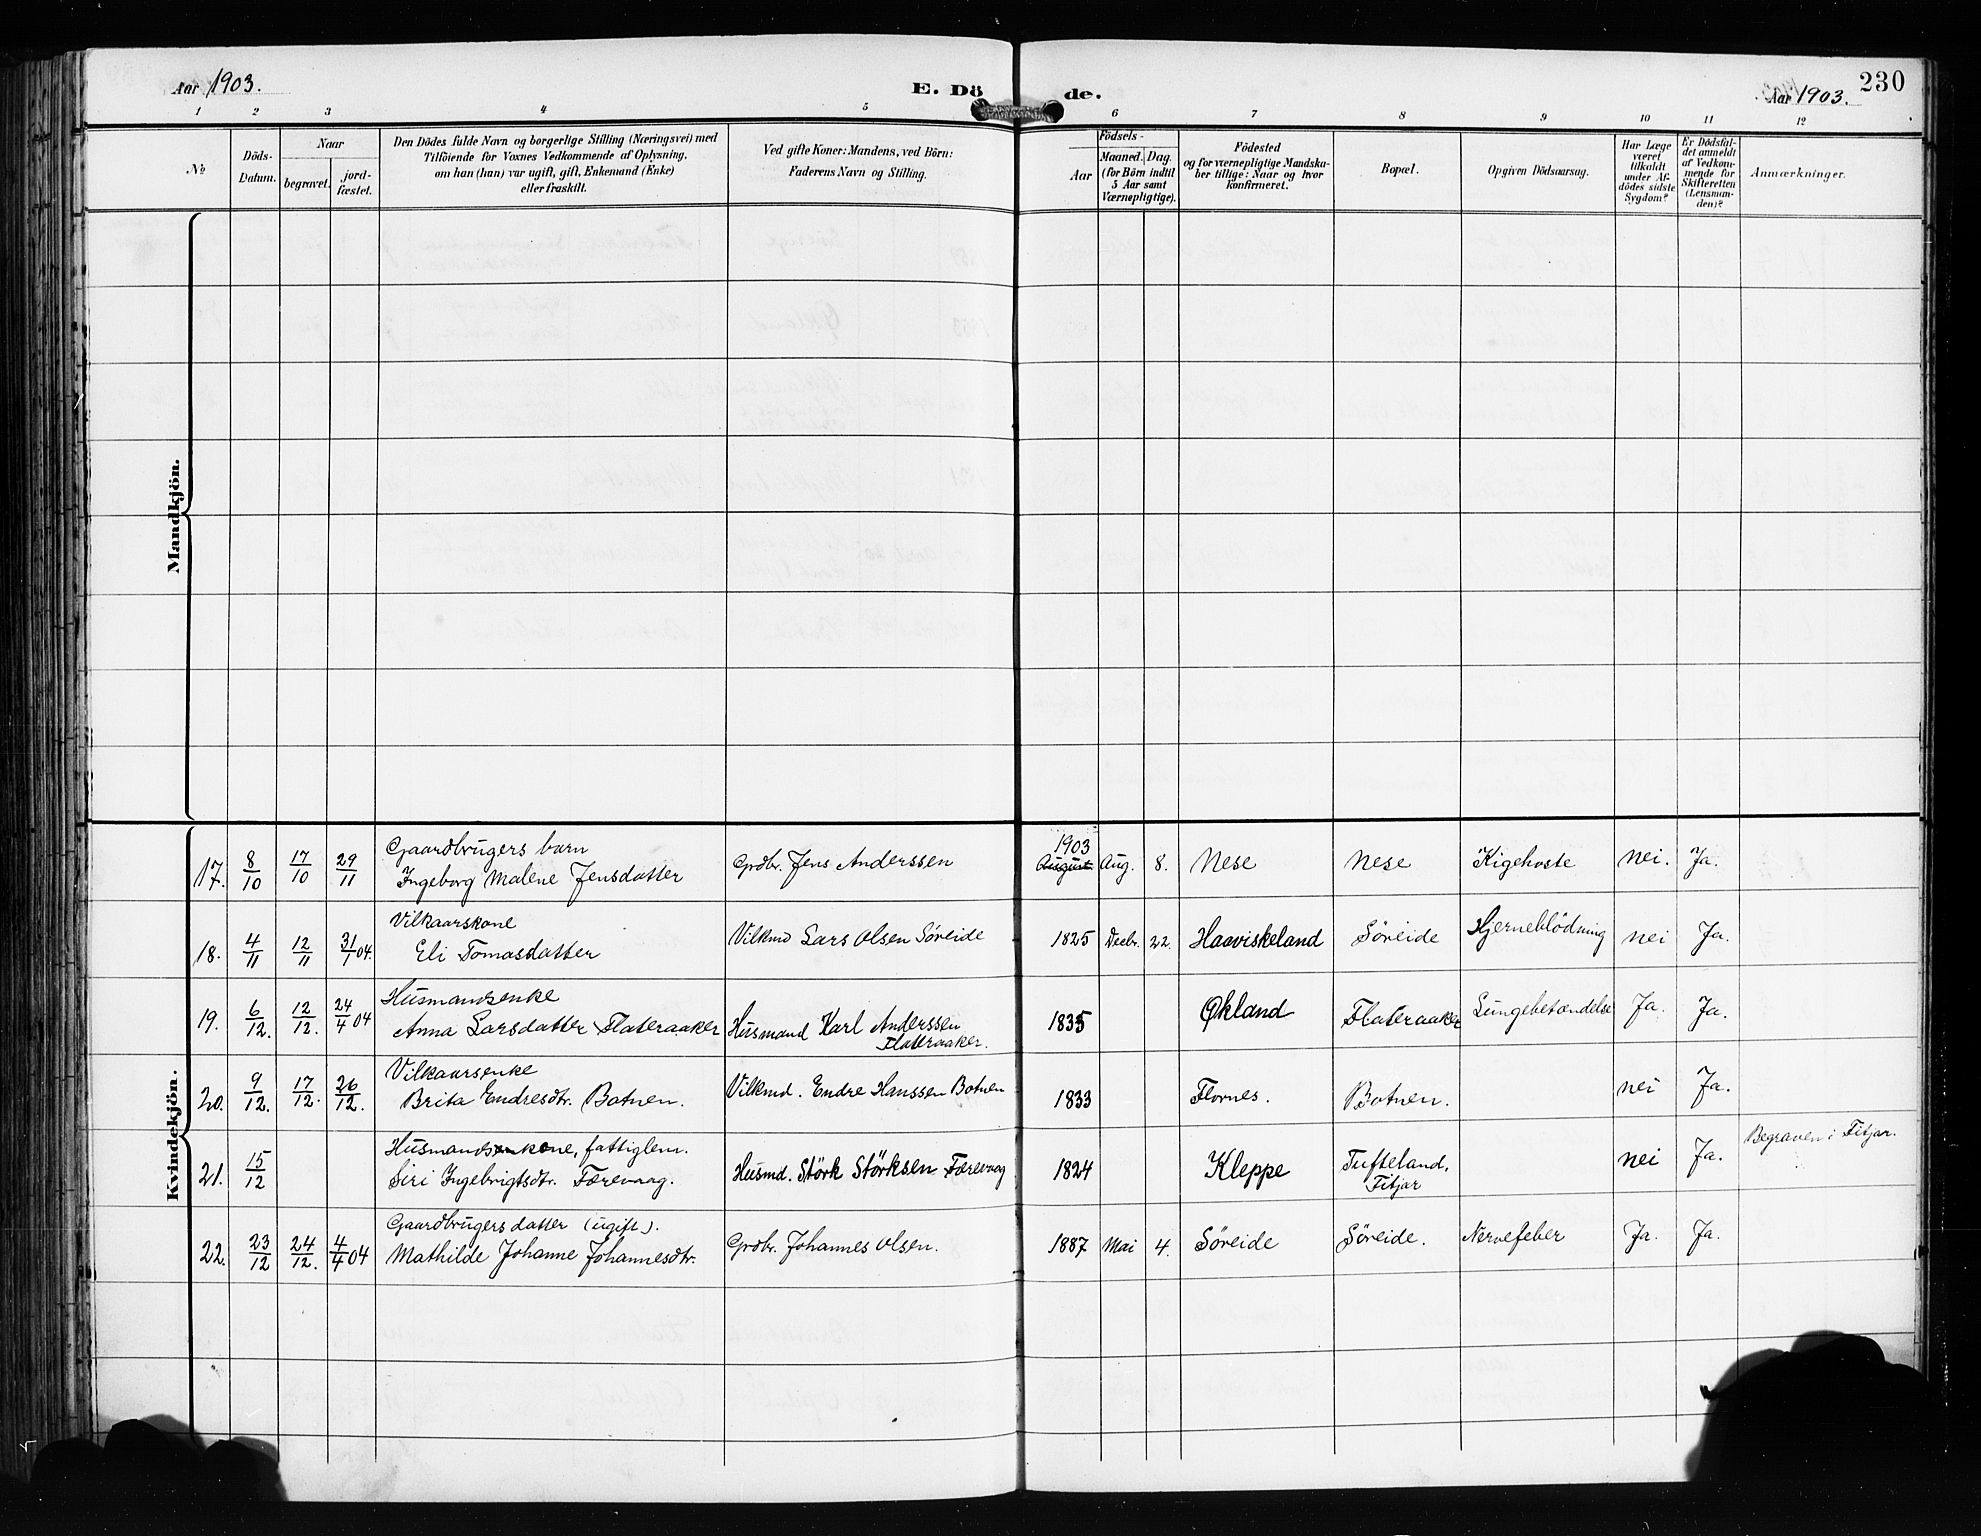 Aar 1903. E. Dö de. Aar 1903. 230
1 2 3 4 5 6 7 8 9 10 11 12
No
Döds-Datum.
Naar
begravet.
jord-fæstet.
Den Dödes fulde Navn og borgerlige Stilling (Næringsvei) med
Tilföiende for Voxnes Vedkommende af Oplysning,
om han (hun) var ugift, gift, Enkemand (Enke)
eller fraskilt.
Ved gifte Koner: Mandens, ved Börn:
Faderens Navn og Stilling.
Födsels-
Aar
Maaned. Dag.
(for Börn indtil
5 Aar samt
Værnepligtige).
Födested
og for værnepligtige Mandska-
ber tillige: Naar og hvor
konfirmeret.
Bopæl.
Opgiven Dödsaarsag.
Har Læge
været
tilkaldt
under Af-
dödes sidste
Sygdom?
Er Dödsfal-
det anmeldt
af Vedkom-
mende for
Skifteretten
(Lensman-
den)?
Anmærkninger.
Mandkjön.
Kvindekjön.
17. 8/10 17/10 29/11 Gaardbrugers barn
Ingeborg Malene Jensdatter Grdbr. Jens Anderssen 1903 August Aug. 8. Nese Nese Kigehoste nei. Ja.
18. 4/11 12/11 31/1 04. Vilkaarskone
Eli Tomasdatter Vilkmd Lars Olsen Söreide 1825 Decbr. 22. Haaviskeland Söreide Hjerneblödning nei Ja.
19. 6/12. 12/12. 24/4 04 Husmandsenke
Anna Larsdatter Flateraaker Husmand Karl Anderssen
Flateraaker. 1835 Økland Flateraaker Lungebetændelse Ja. Ja.
20. 9/12. 17/12. 26/12. Vilkaarsenke
Brita Endresdtr. Botnen. Vilkmd. Endre Hanssen Botnen 1833 Flornes. Botnen. nei Ja.
21. 15/12 Husmandsenkone, fattiglem.
Siri Ingebrigtsdtr. Færevaag. Husmd. Störk Störksen Færevaag 1824 Kleppe Tufteland,
Fitjar nei Ja. Begraven i Fitjar.
22. 23/12 24/12. 4/4 04 Gaardbrugers datter (ugift).
Mathilde Johanne Johannesdtr. Grdbr. Johannes Olsen. 1887 Mai 4. Söreide Söreide. Nervefeber Ja. Ja.